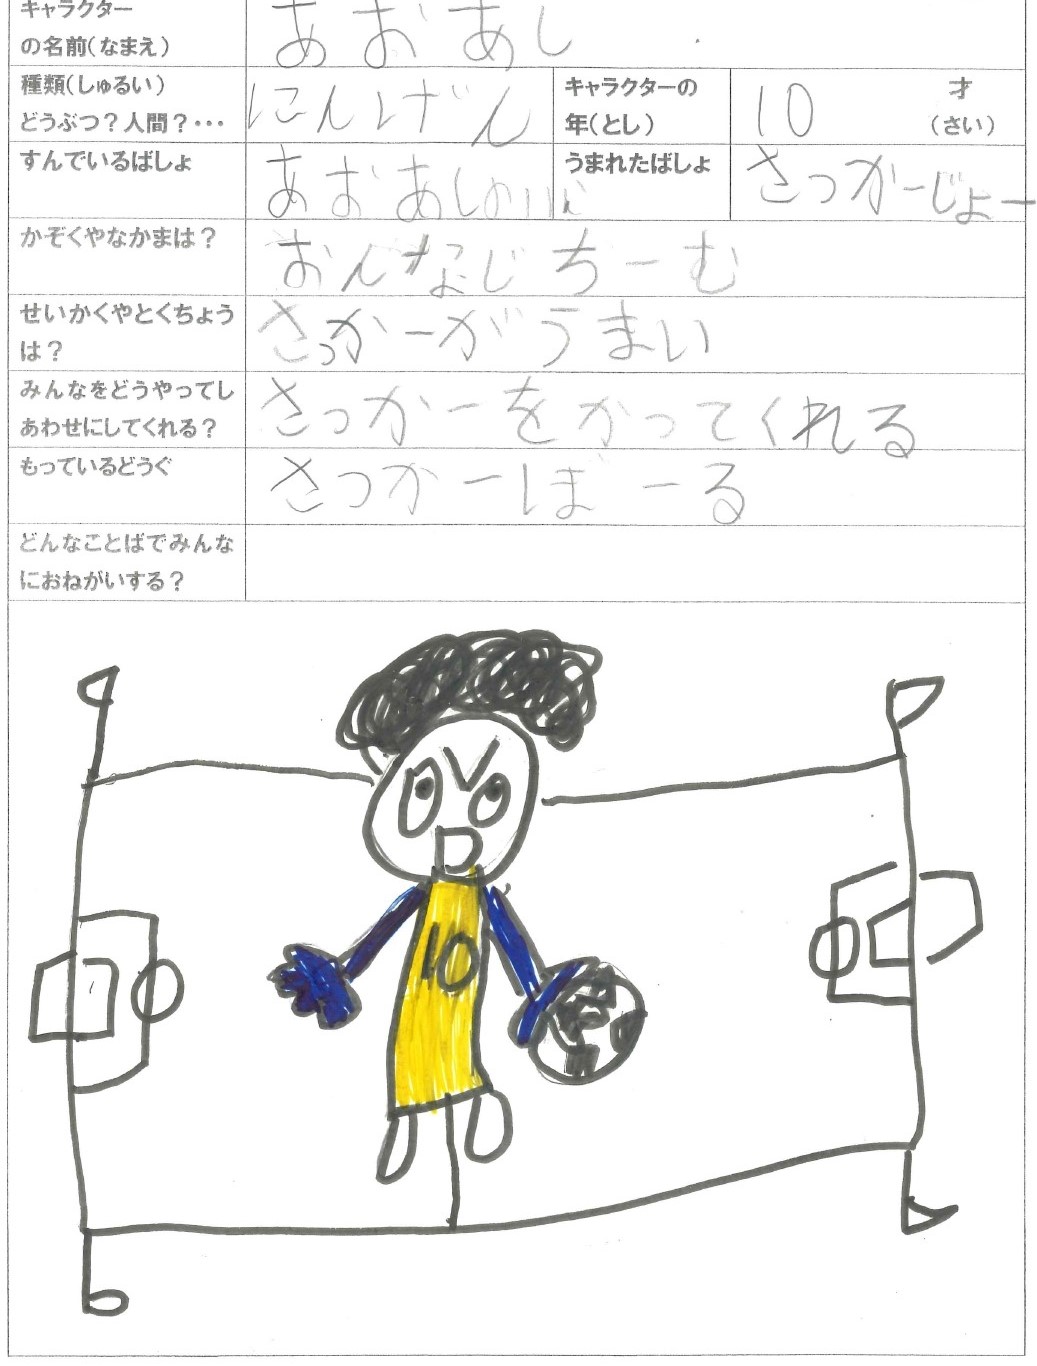 キャラクター
の名前(なまえ)
あおあし
種類(しゅるい)
どうぶつ?人間?・・・
にんげん
キャラクターの
年(とし)
10
才
(さい)
すんでいるばしょ
あおあしの
うまれたばしょ
さっかーじょー
かぞくやなかまは?
おんなじちーむ
せいかくやとくちょう
は?
さっかーがうまい
みんなをどうやってし
あわせにしてくれる?
さっかーをかってくれる
もっているどうぐ
さっかーぼーる
どんなことばでみんな
におねがいする?
10